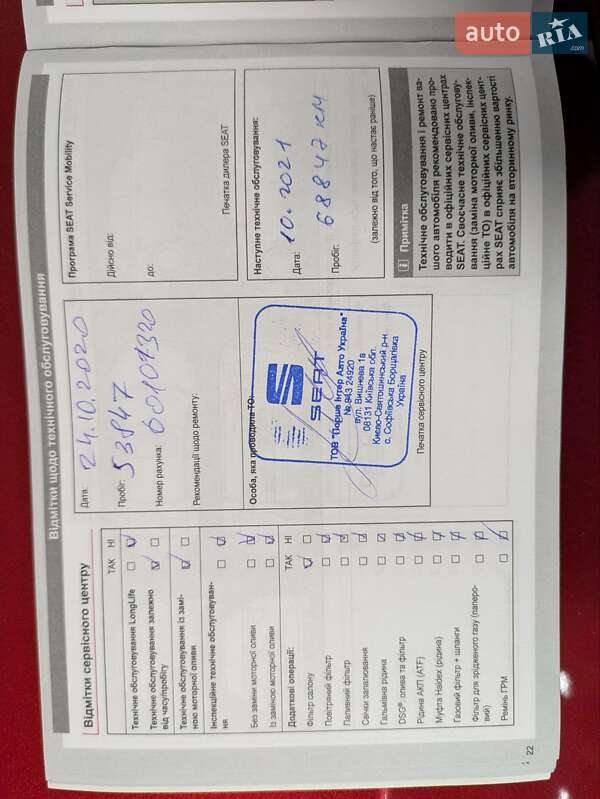 auto RIA.com
Відмітки щодо технічного обслуговування
Відмітки сервісного центру
ТАК НІ
Технічне обслуговування LongLife
Технічне обслуговування залежно
від часу/пробігу
Технічне обслуговування із замі-
ною моторної оливи
Інспекційне технічне обслуговуван-
ня
Без заміни моторної оливи
Із заміною моторної оливи
Додаткові операції:
ТАК НІ
Фільтр салону
Повітряний фільтр
Паливний фільтр
Свічки запалювання
Гальмівна рідина
DSG® олива та фільтр
Рідина АКП (ATF)
Муфта Haldex (рідина)
Газовий фільтр + шланги
Фільтр для зрідженого газу (паперо-
вий)
Ремінь ГРМ
22
Дата: 24.10.2020
Пробіг: 53847
Номер рахунка: 60101320
Рекомендації щодо ремонту:
Особа, яка проводила ТО:
SEAT
ТОВ "Порше Інтер Авто Україна"
№ 943 24920
вул. Вишнева 1а
08131 Київська обл.
Києво-Святошинський р-н
с. Софіївська Борщагівка
Україна
Печатка сервісного центру
Програма SEAT Service Mobility
Дійсно від:
до:
Печатка дилера SEAT
Наступне технічне обслуговування:
Дата: 10.2021
Пробіг: 68847 км
(залежно від того, що настає раніше)
Примітка
Технічне обслуговування і ремонт ва-
шого автомобіля рекомендовано про-
водити в офіційних сервісних центрах
SEAT. Своєчасне технічне обслугову-
вання (заміна моторної оливи, інспек-
ційне ТО) в офіційних сервісних цент-
рах SEAT сприяє збільшенню вартості
автомобіля на вторинному ринку.